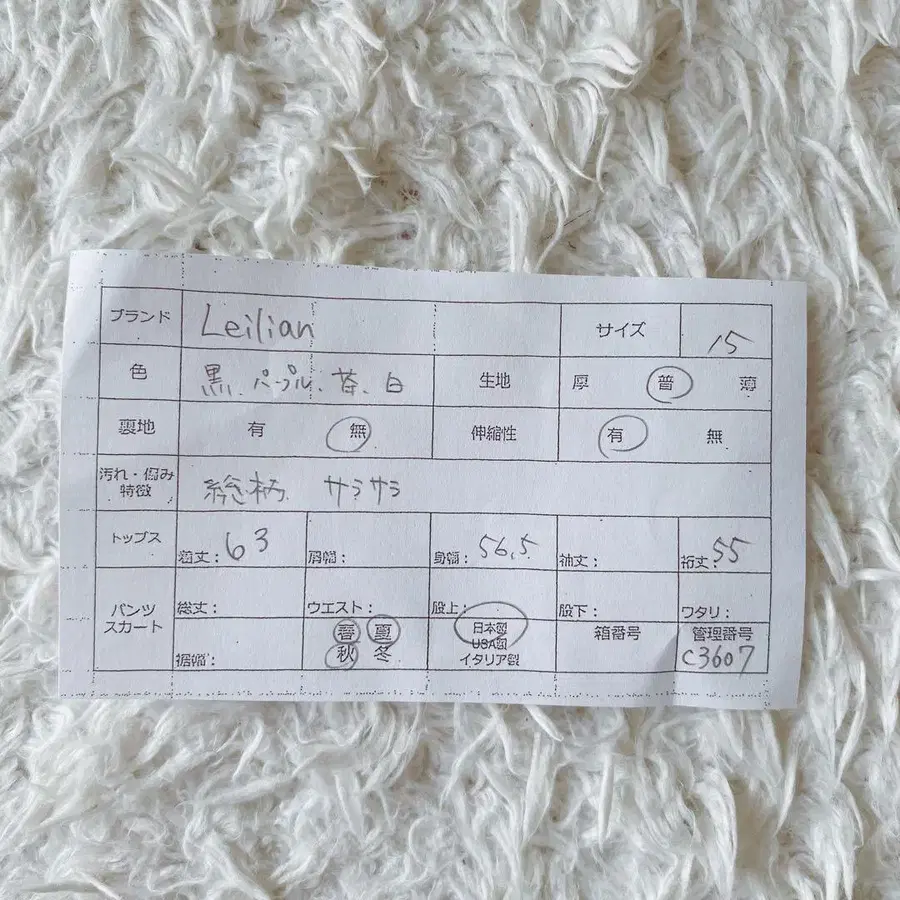 ブランド Leilian サイズ 15
色 黒、パープル、茶、白 生地 厚 普 薄
裏地 有 無 伸縮性 有 無
汚れ・傷み
特徴 総柄 サラサラ
トップス 着丈: 63 肩幅: 身幅: 56.5 袖丈: 裄丈: 55
パンツ
スカート
総丈: ウエスト: 股上: 股下: ワタリ:
裾幅: 春 夏
秋 冬
日本製
USA製
イタリア製
箱番号
管理番号
C3607